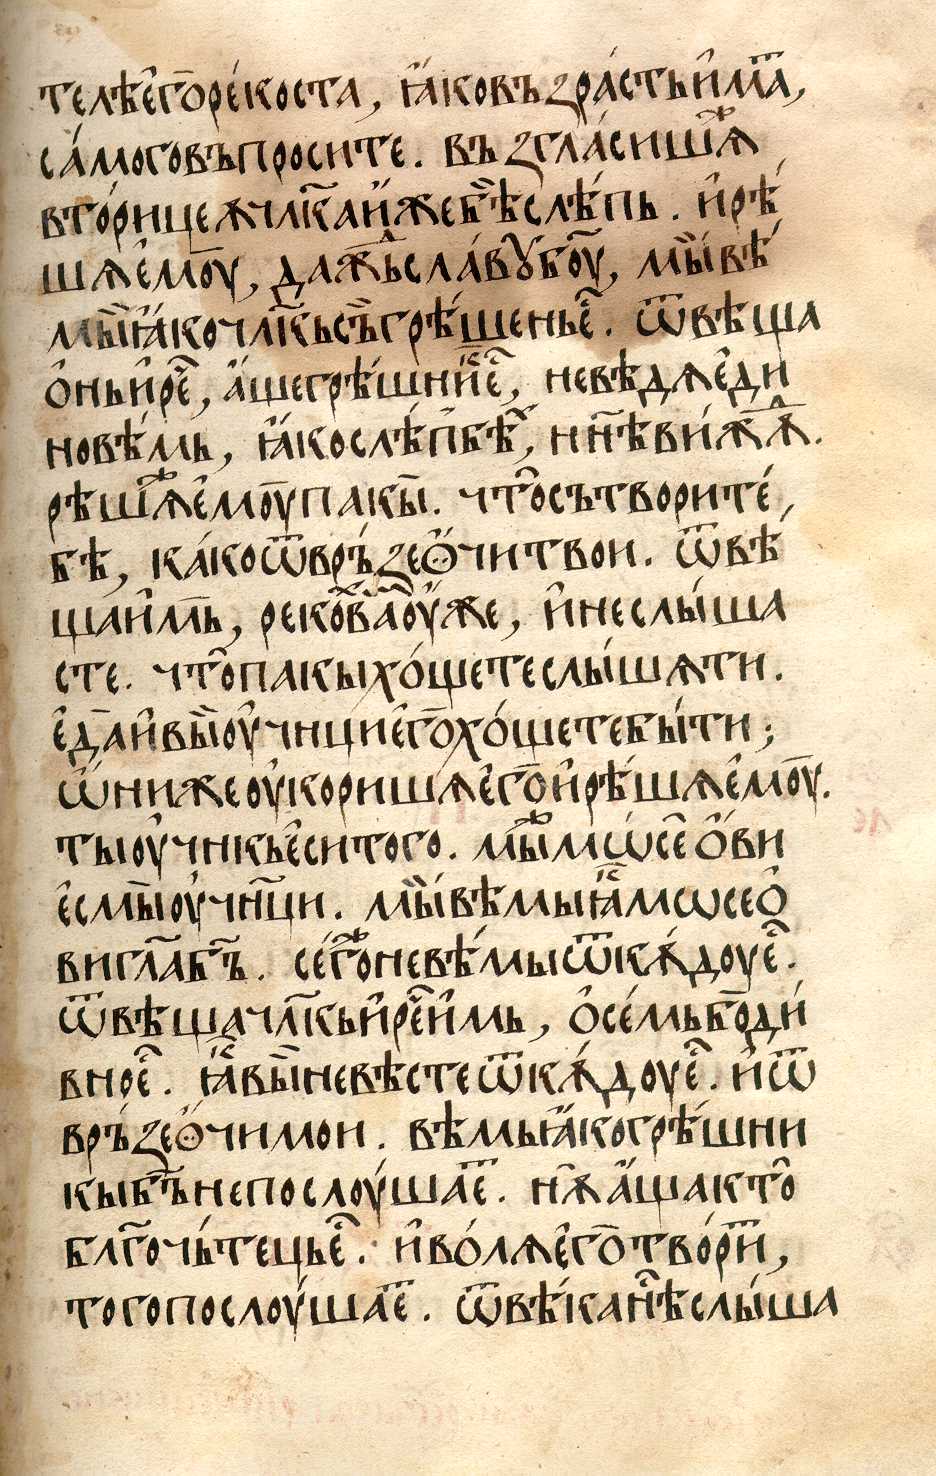 телѣ є҆го̄ реко́ста, ꙗ҆ко въ́зра́сть и҆мат̾,
са́мого въпросите. въ́згла́сишѧⷤ
вто́рицеѫ чл҃ка и҆́же бѣ̀ слѣ́пь. и҆ рѣ́
шѧ є҆мо̄у, да́ждь сла́вꙋ бо̄у, мы̀ вѣ́
мы̀ ꙗ҆ко чл҃кь съ̀ грѣ́шень є҆ⷭ. ѿвѣща
ѻ҆нь и҆ реⷱ҇, а҆́ще грѣ́шни́кь є҆ⷭ, не вѣдѧ є҆ди
но вѣ́мь, ꙗ҆́ко слѣ́пь бѣⷯ, н҃нѣ виждѫ.
рѣшѧⷤ є҆мо̄у пакы̄. что̀ сътвори те́
бѣ, ка́ко ѿвръ́зе ѻ҆́чи твои. ѿвѣ́
ща и҆мь̄, реко́хь ва̄ оу҆́же, и҆ не слы́ша
сте. что̀ пакы хо́щете слы́шѧти.
є҆да̄ и҆ вы̀ оу҆ч҃ници є҆го̄ хо́щете бы́ти;
ѡ҆ни же оу҆коришѧ є҆го̄ и҆ рѣ́шѧ є҆мо̄у.
ты оу҆ч҃нкь є҆си того. мы́ⷤ мѡсе́ѻ҆ви
є҆смы̀ оу҆ч҃нци. мы̀ вѣ́мы ꙗ҆ⷦ мѡсеѻ҆
ви гл҃а бг҃ъ. се́гоⷤ не вѣ́мы ѿкѫ́доу є҆ⷭ.
ѿвѣща чл҃кь и҆ реⷱ҇ и҆мь, ѻ҆ се́мь бо̄ ди́
вно є҆ⷭ. ꙗ҆ⷦ вы̀ не вѣ́сте ѿкѫ́доу є҆ⷭ. и҆ ѿ
връ́зе ѻ҆́чи мои. вѣмы ꙗ҆́ко грѣ́шни
кы бг҃ъ не послоу́шаеⷮ. нѫ̀ а҆́ща кто̀
бл҃гочь́тець є҆ⷭ. и҆ во́лѧ є҆го̄ твориⷮ,
того послоу́шаеⷮ. ѿ вѣ́ка нѣⷭ҇ слы́ша